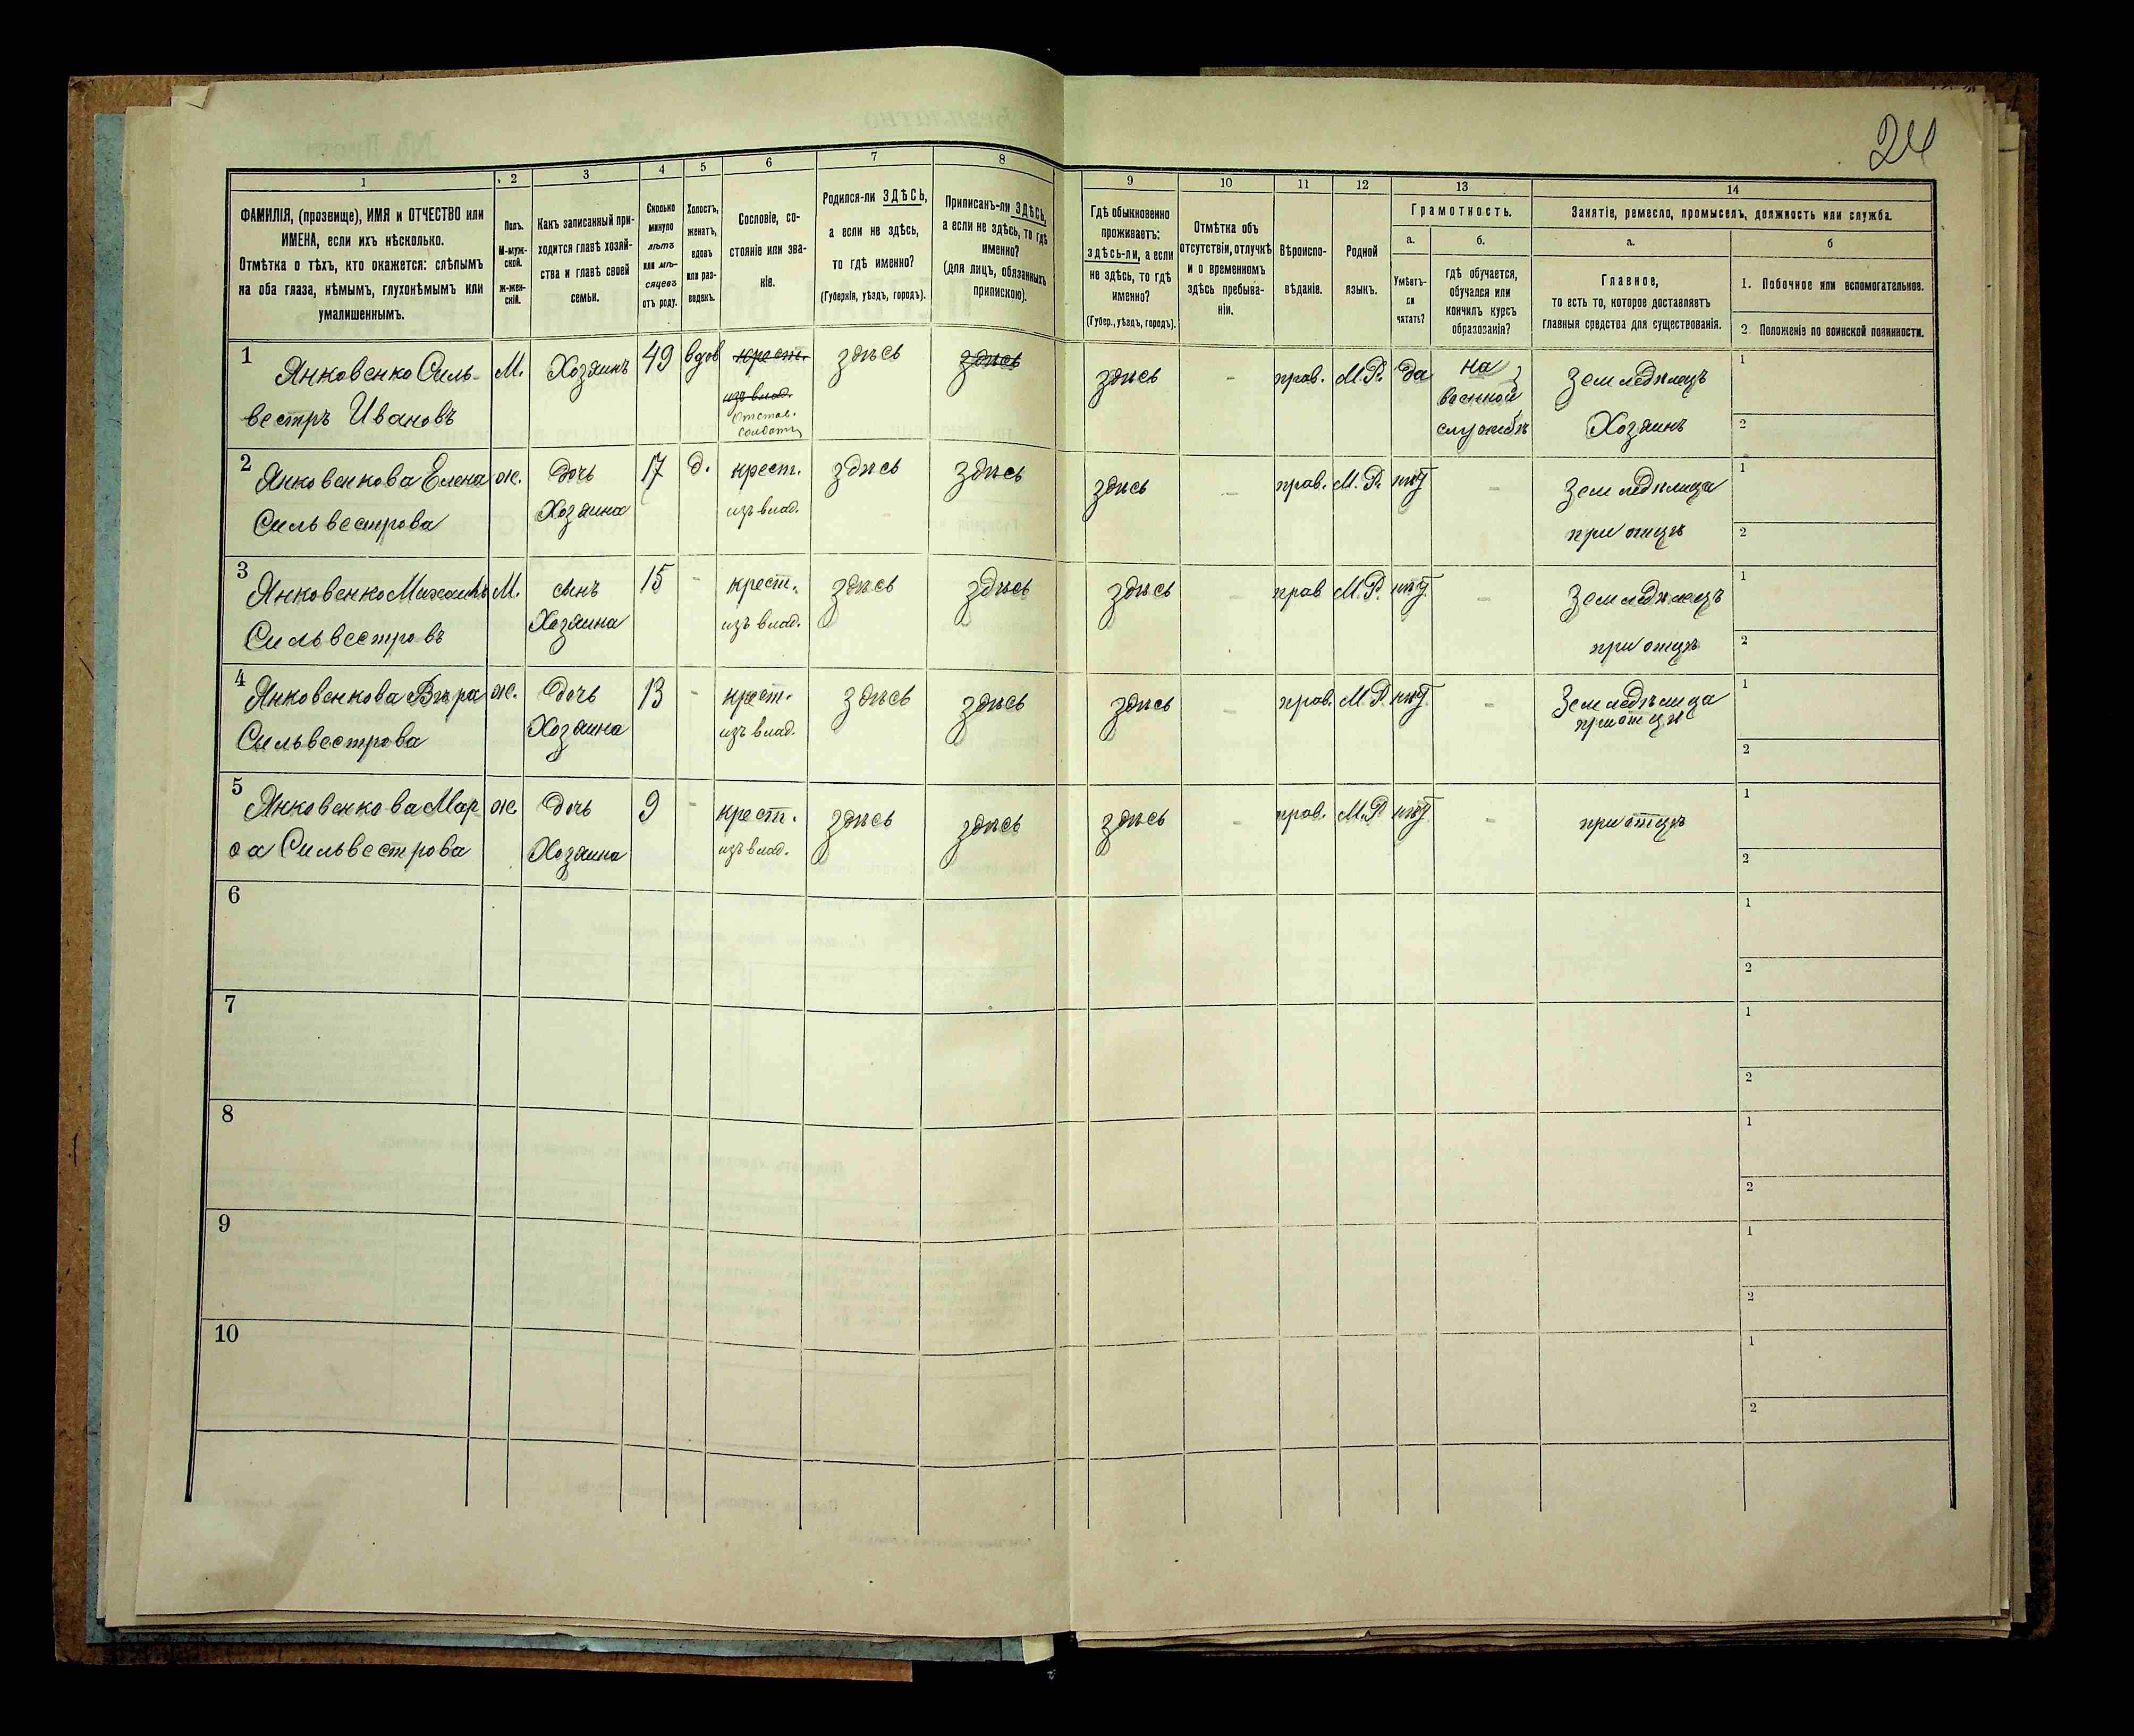 24
1 2 3 4 5 6 7 8 9 10 11 12 13 14
ФАМИЛІЯ, (прозвище), ИМЯ и ОТЧЕСТВО или
ИМЕНА, если ихъ нѣсколько.
Отмѣтка о тѣхъ, кто окажется: слѣпымъ
на оба глаза, нѣмымъ, глухонѣмымъ или
умалишеннымъ.
Полъ.
М-муж-
ской.
ж-жен-
скій.
Какъ записанный при-
ходится главѣ хозяй-
ства и главѣ своей
семьи.
Сколько
минуло
лѣтъ
или мѣ-
сяцевъ
отъ роду.
Холостъ,
женатъ,
вдовъ
или раз-
веденъ.
Сословіе, со-
стояніе или зва-
ніе.
Родился-ли ЗДѢСЬ,
а если не здѣсь,
то гдѣ именно?
(Губернія, уѣздъ, городъ).
Приписанъ-ли ЗДѢСЬ,
а если не здѣсь, то гдѣ
именно?
(для лицъ, обязанныхъ
припискою).
Гдѣ обыкновенно
проживаетъ:
ЗДѢСЬ-ли, а если
не здѣсь, то гдѣ
именно?
(Губер., уѣздъ, городъ).
Отмѣтка объ
отсутствіи, отлучкѣ
и о временномъ
здѣсь пребыва-
ніи.
Вѣроиспо-
вѣданіе.
Родной
языкъ.
Грамотность.
а.
Умѣетъ-
ли
читать?
б.
гдѣ обучается,
обучался или
кончилъ курсъ
образованія?
Занятіе, ремесло, промыселъ, должность или служба.
а.
Главное,
то есть то, которое доставляетъ
главныя средства для существованія.
б
1. Побочное или вспомогательное.
2. Положеніе по воинской повинности.
1 Янковенко Силь- М. Хозяинъ 49 вдов крест. здѣсь здѣсь здѣсь - прав. М.Р. да на Земледѣлецъ 1
вестръ Ивановъ изъ влад. военной
отстав. службѣ Хозяинъ 2
солдатъ
2 Янковенкова Елена ж. дочь 17 д. крест. здѣсь здѣсь здѣсь - прав. М.Р. нѣт - Земледѣлица 1
Сильвестрова Хозяина изъ влад. при отцѣ 2
3 Янковенко Михаилъ М. сынъ 15 - крест. здѣсь здѣсь здѣсь - прав М.Р. нѣт. - Земледѣлецъ 1
Сильвестровъ Хозяина изъ влад. при отцѣ 2
4 Янковенкова Вѣра ж. дочь 13 - крест. здѣсь здѣсь здѣсь - прав. М.Р. нѣт. - Земледѣлица 1
Сильвестрова Хозяина изъ влад. при отцѣ 2
5 Янковенкова Мар ж. дочь 9 - крест. здѣсь здѣсь здѣсь - прав. М.Р. нѣт - при отцѣ 1
ѳа Сильвестрова Хозяина изъ влад. 2
6 1
2
7 1
2
8 1
2
9 1
2
10 1
2